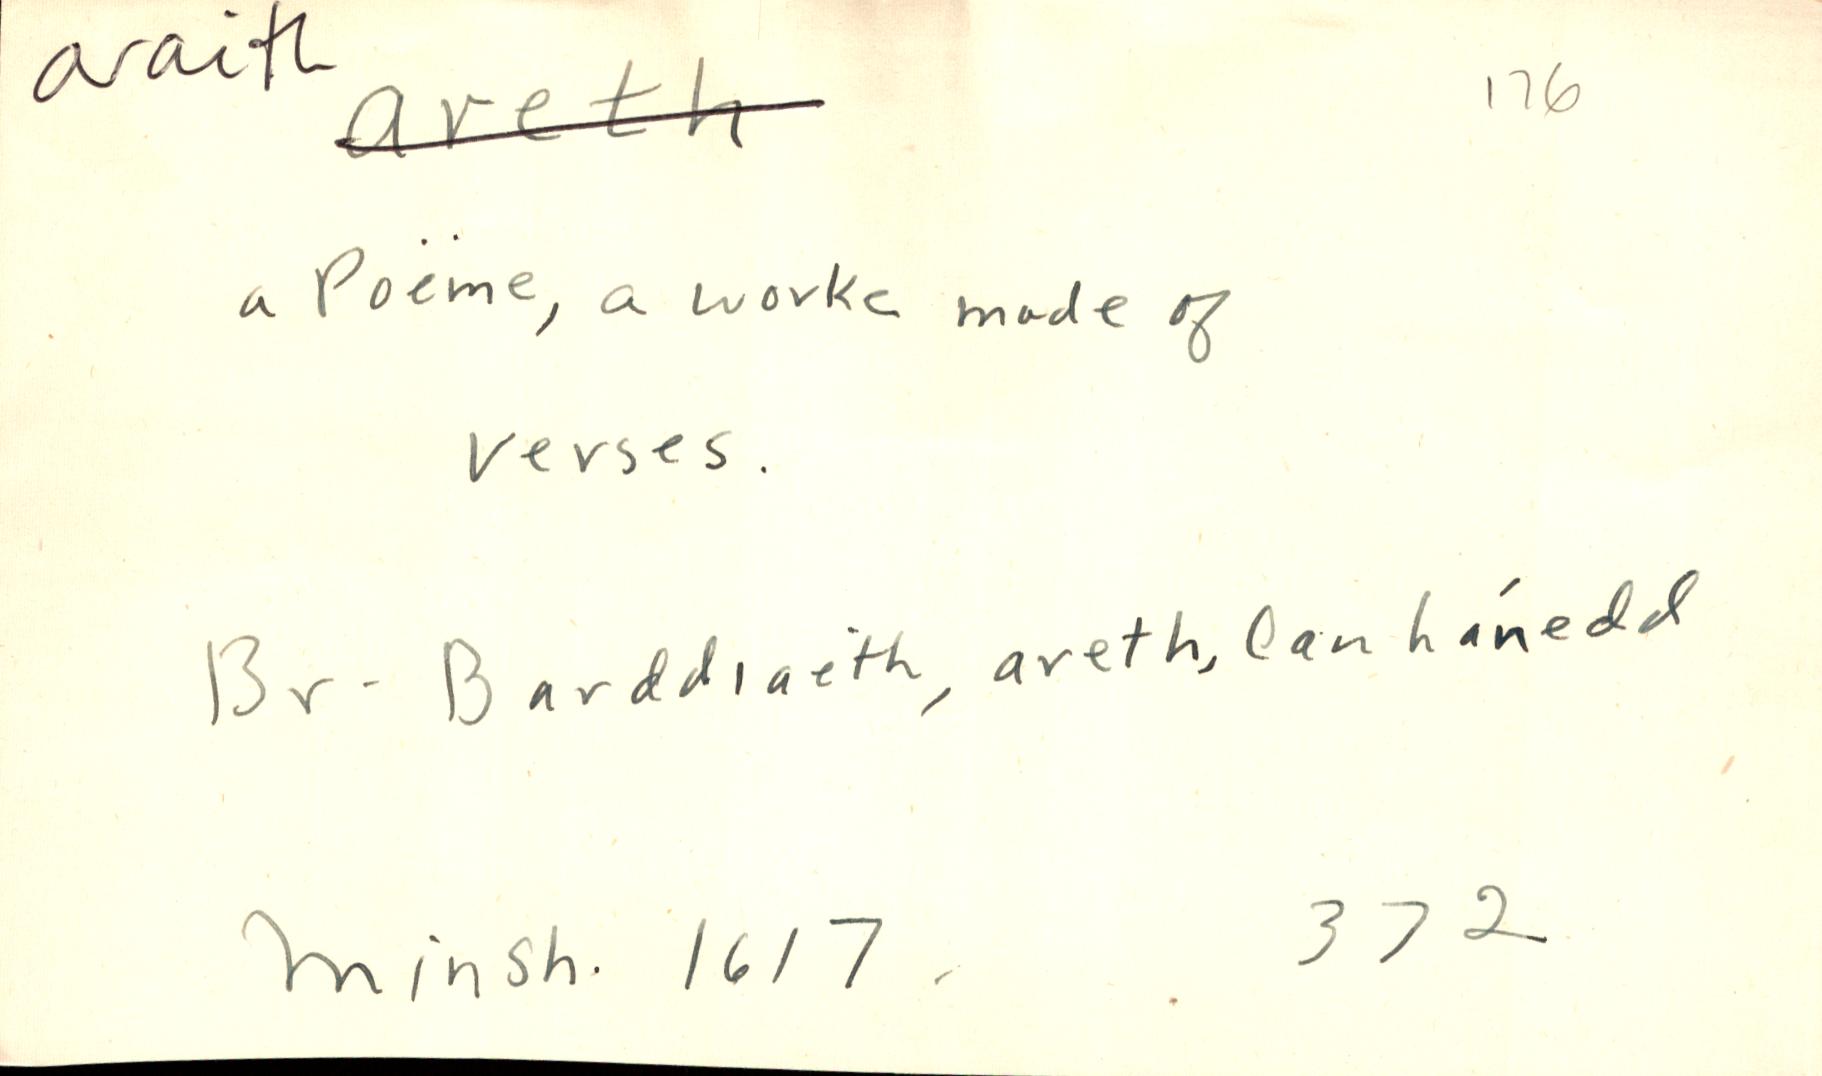 araith
areth
176
a Poëme, a worke made of
verses.
Br- Barddiaeth, areth, Canhánedd
Minsh. 1617. 372